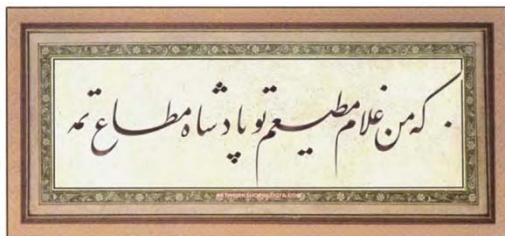 که من غلام مطیعم تو پادشاه مطاع تمه